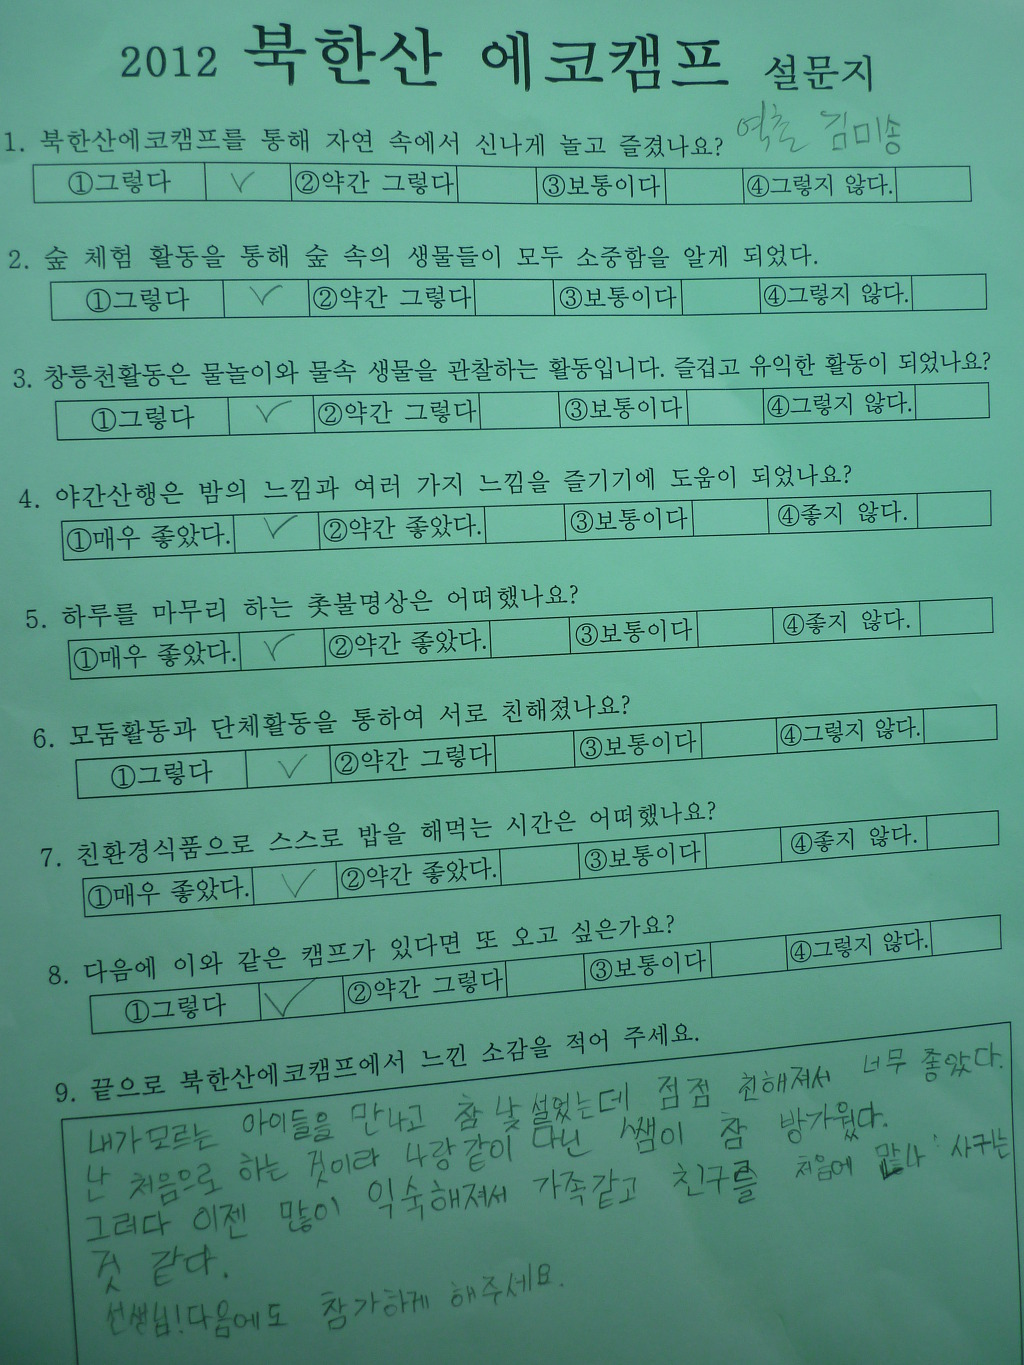 2012 북한산 에코캠프 설문지
역촌 김미송
1. 북한산에코캠프를 통해 자연 속에서 신나게 놀고 즐겼나요?
①그렇다 ✓ ②약간 그렇다 ③보통이다 ④그렇지 않다.
2. 숲 체험 활동을 통해 숲 속의 생물들이 모두 소중함을 알게 되었다.
①그렇다 ✓ ②약간 그렇다 ③보통이다 ④그렇지 않다.
3. 창릉천활동은 물놀이와 물속 생물을 관찰하는 활동입니다. 즐겁고 유익한 활동이 되었나요?
①그렇다 ✓ ②약간 그렇다 ③보통이다 ④그렇지 않다.
4. 야간산행은 밤의 느낌과 여러 가지 느낌을 즐기기에 도움이 되었나요?
①매우 좋았다. ✓ ②약간 좋았다. ③보통이다 ④좋지 않다.
5. 하루를 마무리 하는 촛불명상은 어떠했나요?
①매우 좋았다. ✓ ②약간 좋았다. ③보통이다 ④좋지 않다.
6. 모둠활동과 단체활동을 통하여 서로 친해졌나요?
①그렇다 ✓ ②약간 그렇다 ③보통이다 ④그렇지 않다.
7. 친환경식품으로 스스로 밥을 해먹는 시간은 어떠했나요?
①매우 좋았다. ✓ ②약간 좋았다. ③보통이다 ④좋지 않다.
8. 다음에 이와 같은 캠프가 있다면 또 오고 싶은가요?
①그렇다 ✓ ②약간 그렇다 ③보통이다 ④그렇지 않다.
9. 끝으로 북한산에코캠프에서 느낀 소감을 적어 주세요.
내가 모르는 아이들을 만나고 참 낯설었는데 점점 친해져서 너무 좋았다.
난 처음으로 하는 것이라 나랑같이 다닌 쌤이 참 방가웠다.
그러다 이젠 많이 익숙해져서 가족같고 친구를 처음에 사귀는
것 같다.
선생님! 다음에도 참가하게 해주세요.